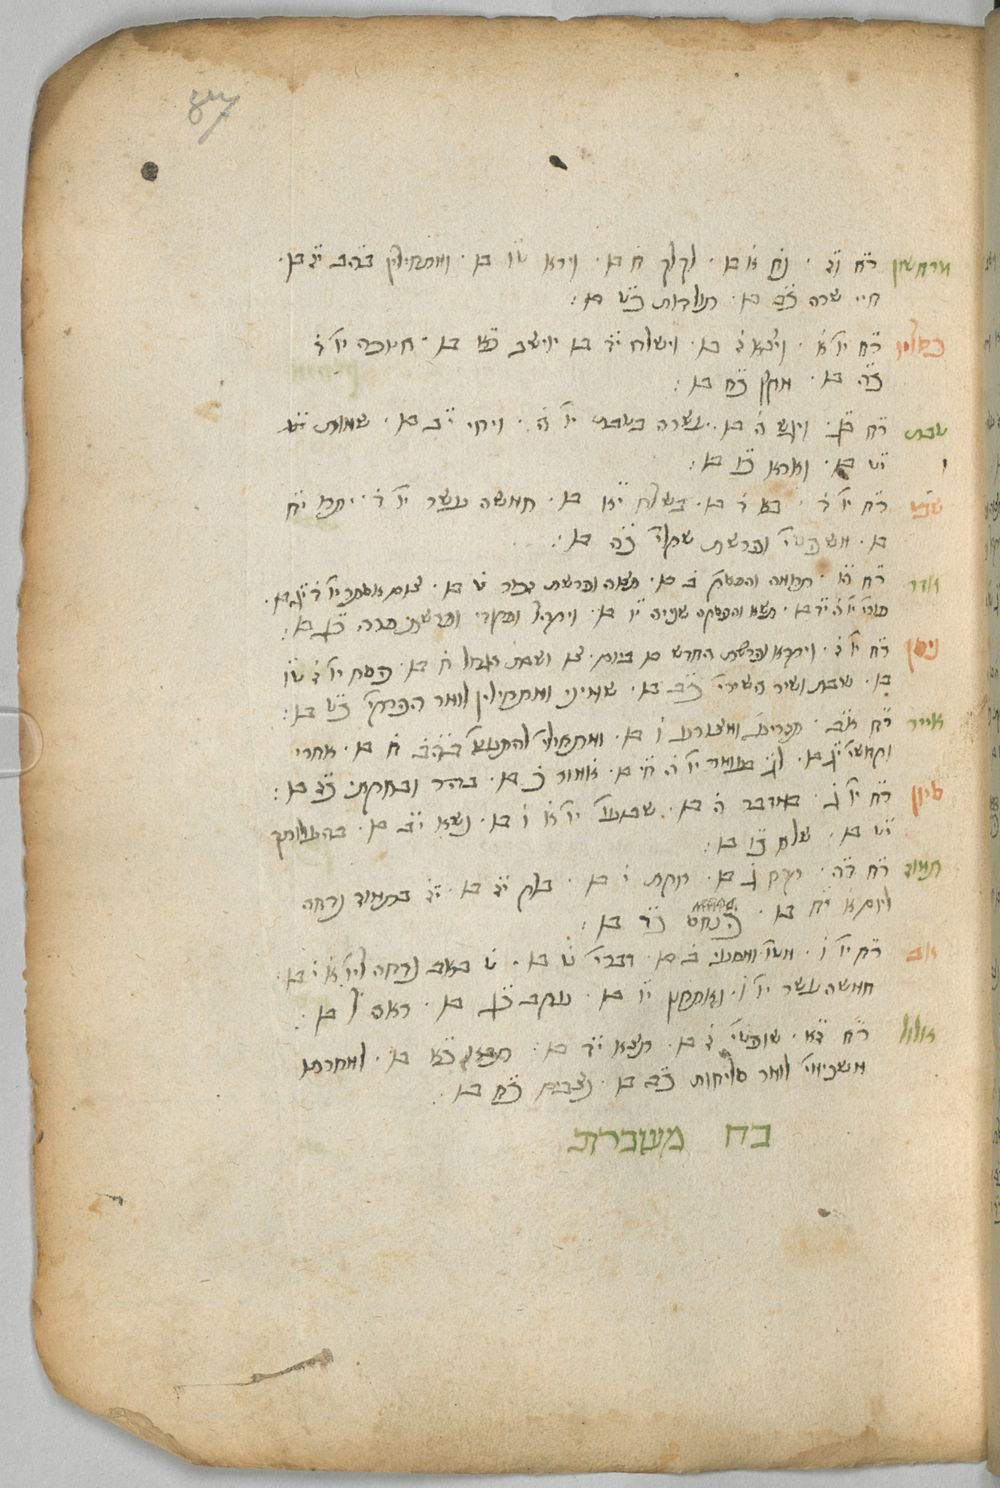 מרחשון ר״ח ו״ז · נח א׳ בו · לך לך ח׳ בו · וירא ט״ו בו · ומתחילין בה״ב י״ז בו ·
חיי שרה כ״ב בו · תולדות כ״ט בו :
כסליו ר״ח יו׳ א׳ · ויצא ז׳ בו · וישלח י״ד בו וישב כ״א בו · חנוכה יו׳ ד׳
כ״ה בו · מקץ כ״ח בו :
טבת ר״ח · ויגש ה׳ בו · עשרה בטבת יו׳ ה׳ · ויחי י״ב בו · שמות
י״ט בו · וארא כ״ו בו :
שבט ר״ח יו׳ ד׳ · בא ד׳ בו · בשלח י״א בו · חמשה עשר יו׳ ד׳ · יתרו י״ח
בו · משפטי׳ ופרשת שקלי׳ כ״ה בו :
אדר ר״ח · תרומה והפסק׳ ב׳ בו · תצוה ופרשת זכור ט׳ בו · צום אסתר יו׳ ד׳ י״ג בו ·
פורי׳ יו׳ ה׳ י״ד בו · תשא והפסקה שנייה י״ו בו · ויקהל ופקודי ופרשת פרה כ״ג בו :
ניסן ר״ח יו׳ ז׳ · ויקרא ופרשת החדש בו ביום · צו ושבת הגדול ח׳ בו · פסח יו׳ ז׳ ט״ו
בו · שבת ושיר השירי׳ כ״ב בו · שמיני ומתחילין לומר הפרקי׳ כ״ט בו :
אייר ר״ח א״ב · תזריע ומצורע ו׳ בו · ומתחילי׳ להתענות בה״ב ח׳ בו · אחרי
וקדושי׳ י״ג בו · ל״ג בעומר יו׳ ה׳ י״ח בו · אמור כ׳ בו · בהר ובחקתי כ״ז בו :
סיון ר״ח יו׳ ג׳ · במדבר ה׳ בו · שבועו׳ יו׳ א׳ ו׳ בו · נשא י״ב בו · בהעלותך
י״ט בו · שלח כ״ו בו :
תמוז ר״ח ד״ה · קרח ג׳ בו · חקת י׳ בו · בלק י״ז בו · י״ז בתמוז נדחה
ליום א׳ י״ח בו · פנחס כ״ד בו :
אב ר״ח יו׳ ו׳ · מטו׳ ומסעי ב׳ בו · דברי׳ ט׳ בו · ט׳ באב נדחה ליו׳ א׳ י׳ בו ·
חמשה עשר יו׳ ו׳ · ואתחנן י״ו בו · עקב כ״ג בו · ראה ל׳ בו :
אלול ר״ח ז״א · שופטי׳ ז׳ בו · תצא י״ד בו · תבא כ״א בו · למחרתו
משכימי׳ לומר סליחות כ״ב בו · נצבים כ״ח בו :
בח משברת